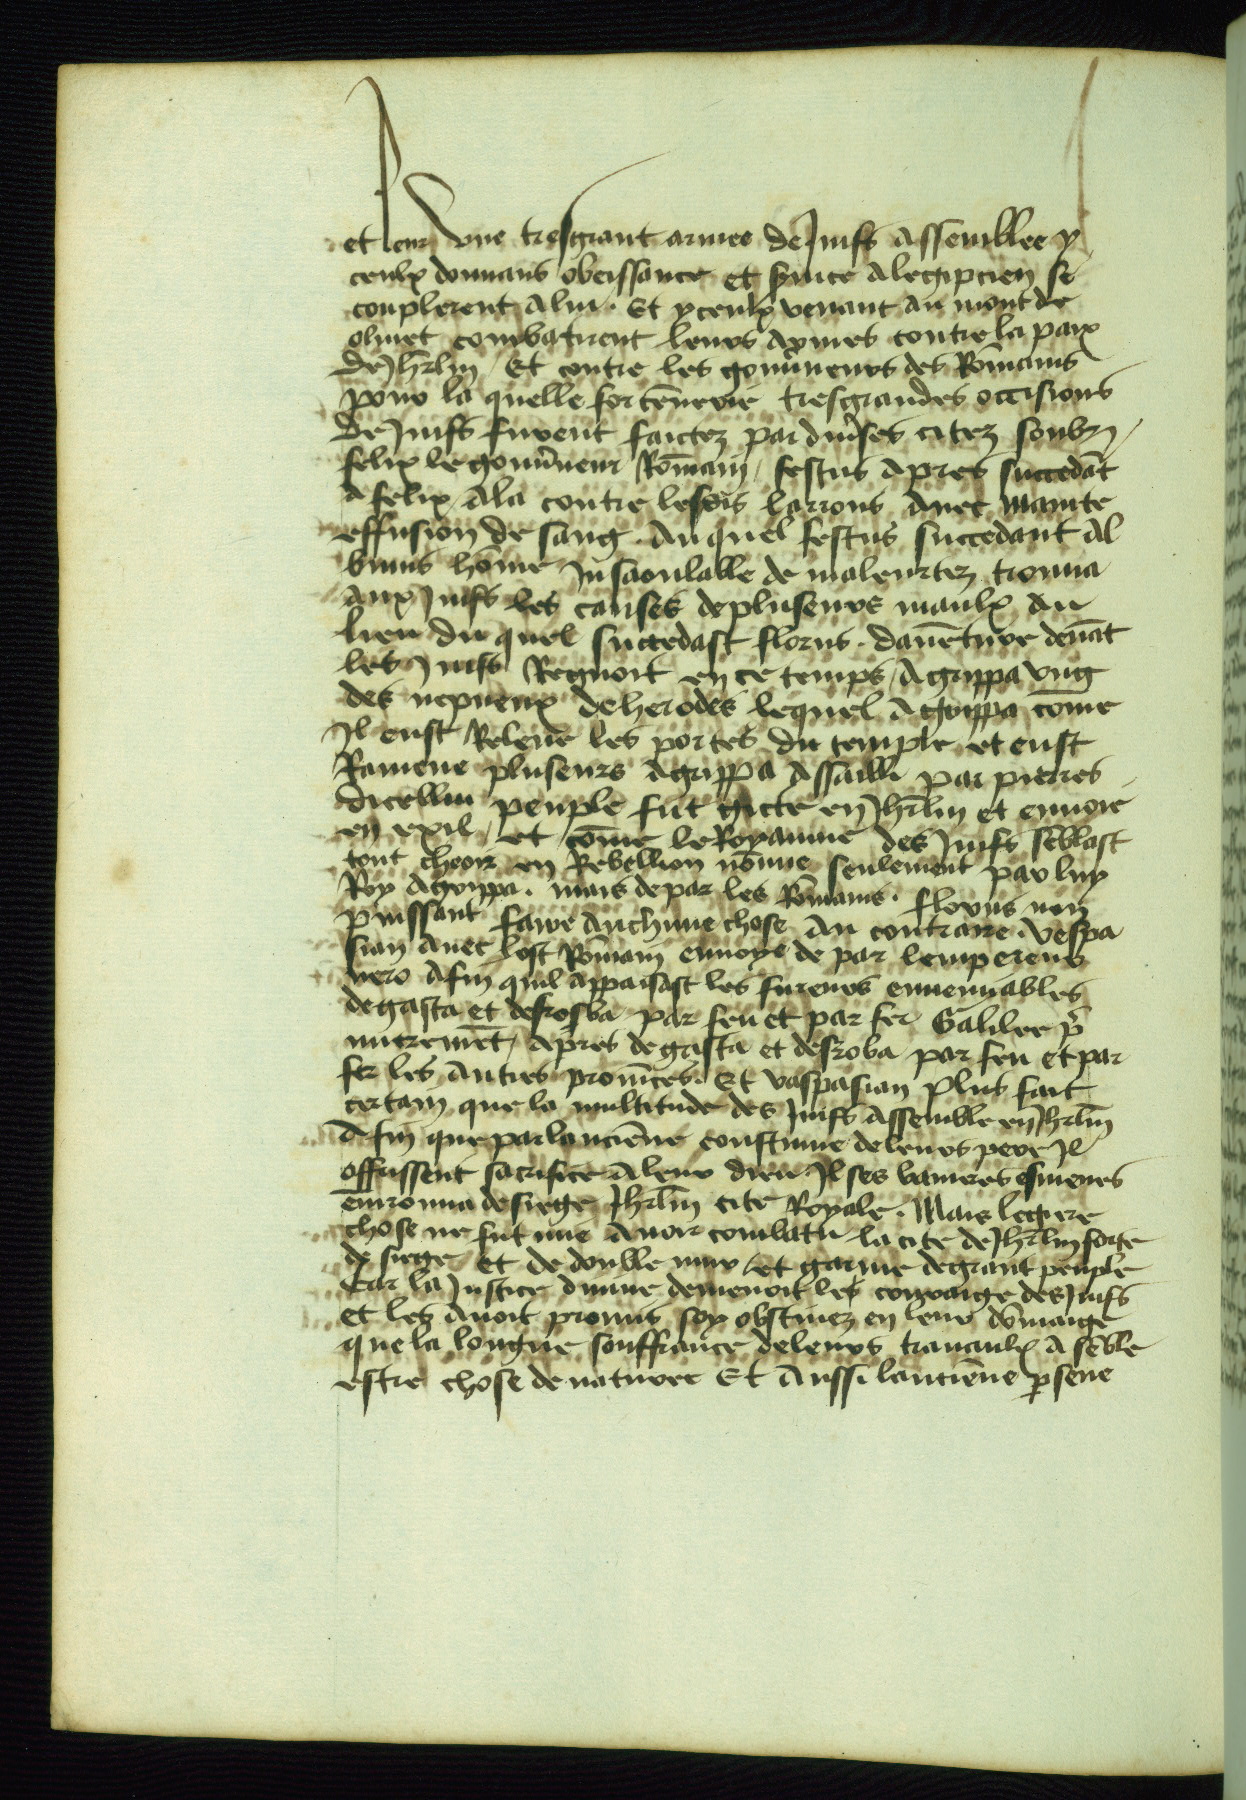 et leur vne tresgrant armee de Juifs assemblee y
ceulx donnans obeissance et s̃uice a legipcien se
couplerent a lui. Et yceulx venant au mont de
olivet combatirent leurs armes contre la paix
de Jhrl̃m / Et contre les gouv̾neurs des Rõmains
pour la quelle forcēnerie tresgrandes occisions
de Juifs furent faictez par div̾ses citez soubz
felix le gouv̾neur Rõmain / festus apres succedãt
a felix / ala contre lesdis larrons avec mainte
effusion de sang. Au quel festus succedant Al
binus hõme Insaoulable de maleurtez trouua
aux Juifs les causes de pluseurs maulx au
lieu du quel succedast florus. dauẽture deuãt
les Juifs Regnoit en ce temps / Agrippa vng
des nepueux de herodes lequel Agrippa cõme
Il eust Releue les portes du temple et eust
Ramene pluseurs Agrippa assailli par pierres
dicellui peuple fut gicte en Jhrl̃m et enuoie
en exil / et cõme le Royaume des Juifs sẽblast
tout cheoir en Rebellion nõmie seulement par luy
Roy Agrippa. mais de par les Rõmains. florus non
puissant faire aucune chose au contraire. Vespa
sian avec lost Rõmain enuoye de par lempereur
nero afin quil appaisast les fureurs ennemiables
degasta et desroba par feu et par fer Galilee p̃
mierement / apres degasta et desroba par feu et par
fer les autres prouĩces. Et vaspasian plus fait
certain que la multitude des Juifs assemblee en Jhrl̃m
afin que par lanciẽne coustume de leurs pere Il
offrissent sacrifice a leur dieu Il ses banieres esmeues
ẽuironna de siege Jhrl̃m cite Royale. Mais legiere
chose ne fut mie avoir combatu la cite de Jhrl̃m forte
de siege et de double mur / et garnie de grant peuple
Car la Justice diuine demenoit les couraige des Juifs
et les avoit promis soy obstinez en leur dõmaige
que la longue souffrance de leurs trauaulx a sẽble
estre chose de nature Et aussi lanciẽne pseue